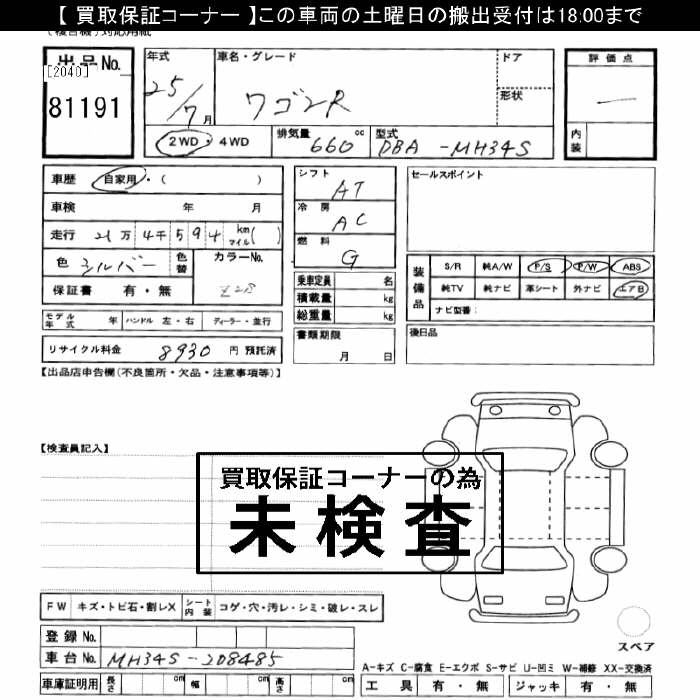 【 買取保証コーナー 】この車両の土曜日の搬出受付は18:00まで
出品No.
[2040]
81191
年式
25/7月
車名・グレード
ワゴンR
ドア
形状
評価点
—
内装
2WD・4WD
排気量
660 cc
型式
DBA-MH34S
車歴 自家用・( )
車検 年 月
走行 21万4千594 km マイル( )
色 シルバー
色替
カラーNo.
Z2S
保証書 有・無
モデル年式 年 ハンドル 左・右 ディーラー・並行
リサイクル料金 8930 円 預託済
シフト AT
冷房 AC
燃料 G
乗車定員 名
積載量 kg
総重量 kg
書類期限
月 日
セールスポイント
装備品
S/R 純A/W P/S P/W ABS
純TV 純ナビ 革シート 外ナビ エアB
ナビ型番:
後日品
【出品店申告欄(不良箇所・欠品・注意事項等)】
【検査員記入】
買取保証コーナーの為
未検査
FW キズ・トビ石・割レX シート内装 コゲ・穴・汚レ・シミ・破レ・スレ
登録No.
車台No. MH34S-208485
車庫証明用 長さ cm 幅 cm 高さ cm
スペア
A-キズ C-腐食 E-エクボ S-サビ U-凹ミ W-補修 XX-交換済
工具 有・無 ジャッキ 有・無